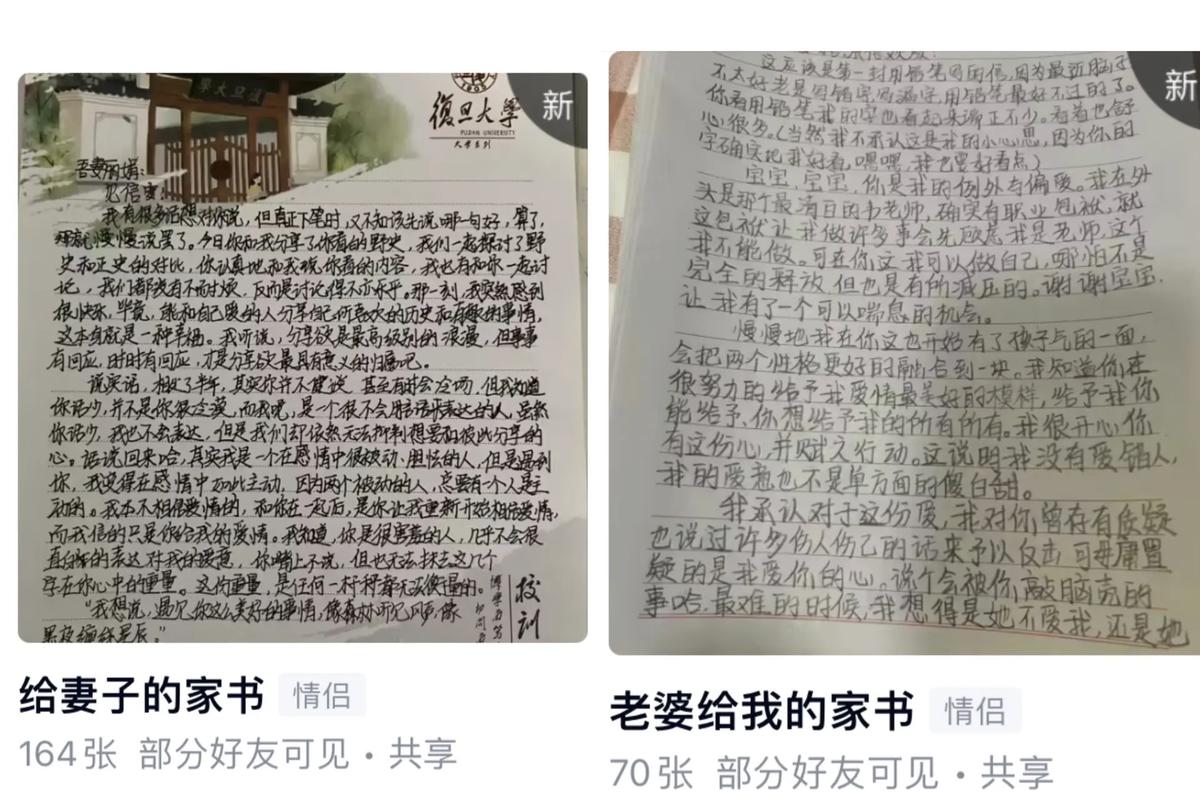 復旦大學
FUDAN UNIVERSITY
大学系列
新
吾妻丽娟:
见信安!
我有很多话想对你说，但真正下笔时，又不知该先说哪一句好，算了，
那就慢慢说罢了。今日你和我分享了你看的野史，我们一起探讨了野
史和正史的对比，你认真地和我说你看的内容，我也有和你一起讨
论，我们都没有不耐烦，反而是讨论得不亦乐乎。那一刻，我突然感到
很快乐，毕竟，能和自己爱的人分享自己所喜欢的历史和有趣的事情，
这本身就是一种幸福。我听说，分享欲是最高级别的浪漫，但事事
有回应，时时有回应，才是分享欲最具有意义的归宿吧。
说实话，相处了半年，其实你并不健谈，甚至有时会冷场，但我知道
你话少，并不是你很冷漠，而我呢，是一个很不会用话语表达的人，虽然
你话少，我也不会表达，但是我们却依然无法抑制想要和彼此分享的
心。话说回来哈，其实我是一个在感情中很被动、胆怯的人，但是遇到
你，我变得在感情中如此主动，因为两个被动的人，总要有一个人是主
动的。我本不相信爱情的，和你在一起后，是你让我重新开始相信爱情，
而我信的只是你给我的爱情。我知道，你是很害羞的人，几乎不会很
直白的表达对我的爱意，你嘴上不说，但也无法抹去这几个
字在你心中的重量。这份重量，是任何一杆秤都无法衡量的。
"我想说，遇见你这么美好的事情，像森林听见风声，像
黑夜缠绵星辰。"
校训
给妻子的家书 情侣
164张 部分好友可见・共享
新
这应该是第一封用铅笔写的信，因为最近脑子
不太好老是写错字写漏字，用铅笔最好不过的了。
你看用铅笔我的字也看起来端正不少。看着也舒
心很多。(当然我不承认这是我的小心思，因为你的
字确实比我好看，嘿嘿，我也要好看点)
宝宝，宝宝，你是我的例外与偏爱。我在外
头是那个最清白的书老师，确实有职业包袱，就
这包袱让我做许多事会先顾忌我是老师，这个
我不能做。可在你这我可以做自己，哪怕不是
完全的释放，但也是有所减压的。谢谢宝宝，
让我有了一个可以喘息的机会。
慢慢地我在你这也开始有了孩子气的一面，
会把两个性格更好的融合到一块。我知道你在
很努力的给予我爱情最美好的模样，给予我你
能给予，你想给予我的所有所有。我很开心，你
有这份心，并赋之行动。这说明我没有爱错人，
我的爱意也不是单方面的傻白甜。
我承认对于这份爱，我对你曾存有质疑
也说过许多伤人伤己的话来予以反击，可毋庸置
疑的是我爱你的心。说个会被你敲脑壳的
事哈，最难的时候，我想得是她不爱我，还是她
老婆给我的家书 情侣
70张 部分好友可见・共享